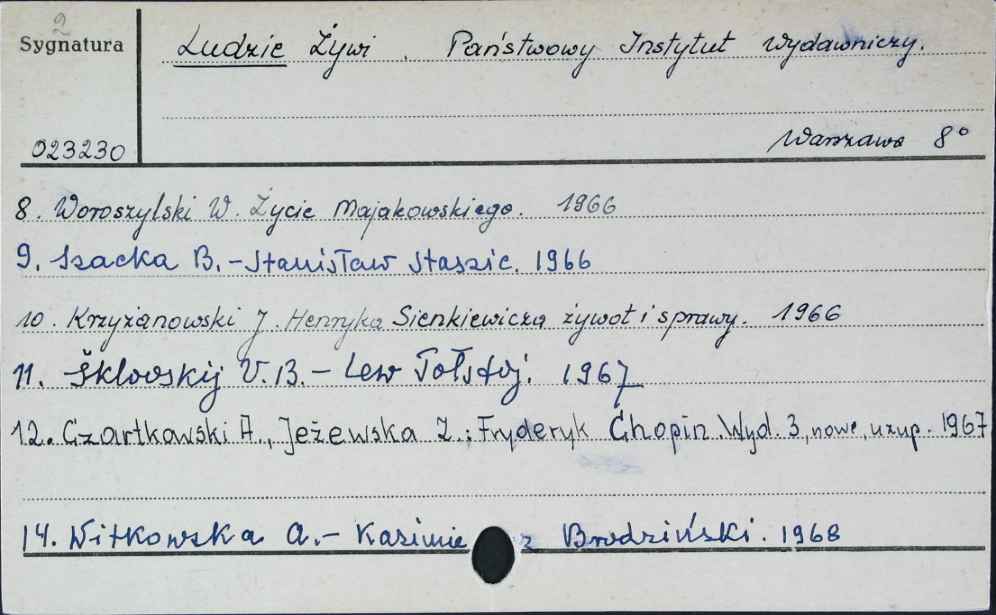 2
Sygnatura
Ludzie Żywi. Państwowy Instytut Wydawniczy.
Warszawa 8°
023230
8. Woroszylski W. Życie Majakowskiego. 1966
9. Szacka B. - Stanisław Staszic. 1966
10. Krzyżanowski J. Henryka Sienkiewicza żywot i sprawy. 1966
11. Šklovskij V.B. - Lew Tołstoj. 1967
12. Czartkowski A., Jeżewska Z.: Fryderyk Chopin. Wyd. 3, nowe, uzup. 1967
14. Witkowska A. - Kazimierz Brodziński. 1968